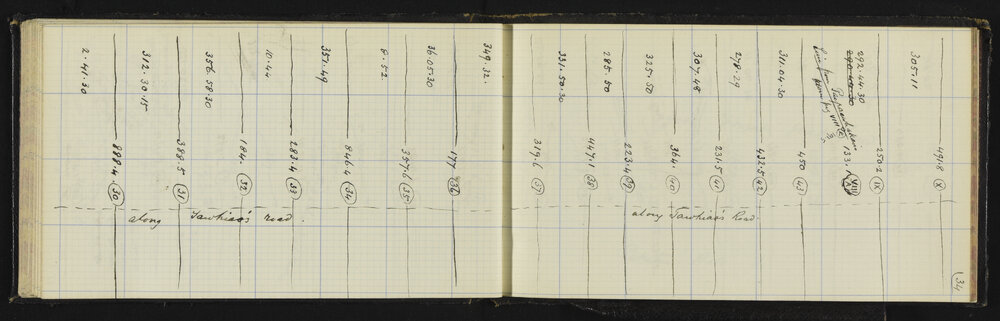 2.41.30
888.4 (30)
312.30.15
388.5 (31)
356.58.30
184. (32)
10.44
283.4 (33)
351.49
846.4 (34)
8.52
357.6 (35)
36.05.30
177. (36)
349.32.
along Tawhiao's road.
331.50.30
319.6 (37)
285.50
447.1 (38)
325.50
223.4 (39)
307.48
364. (40)
278.29
231.5 (41)
311.04.30
432.5 (42)
450 (43)
133. VIII A
292.44.30
290.48.30
250.2 (IX)
305.11
491.8 (X)
along Tawhiao's Road
34